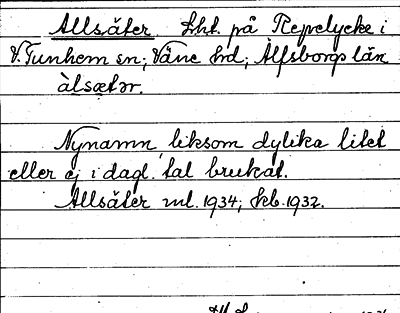 Allsäter. Lht. på Repelycke i
V. Tunhem sn; Väne hrd; Älfsborgs län
àlsætər.
Nynamn, liksom dylika litet
eller ej i dagl. tal brukat.
Allsäter ml. 1934; kb. 1932.